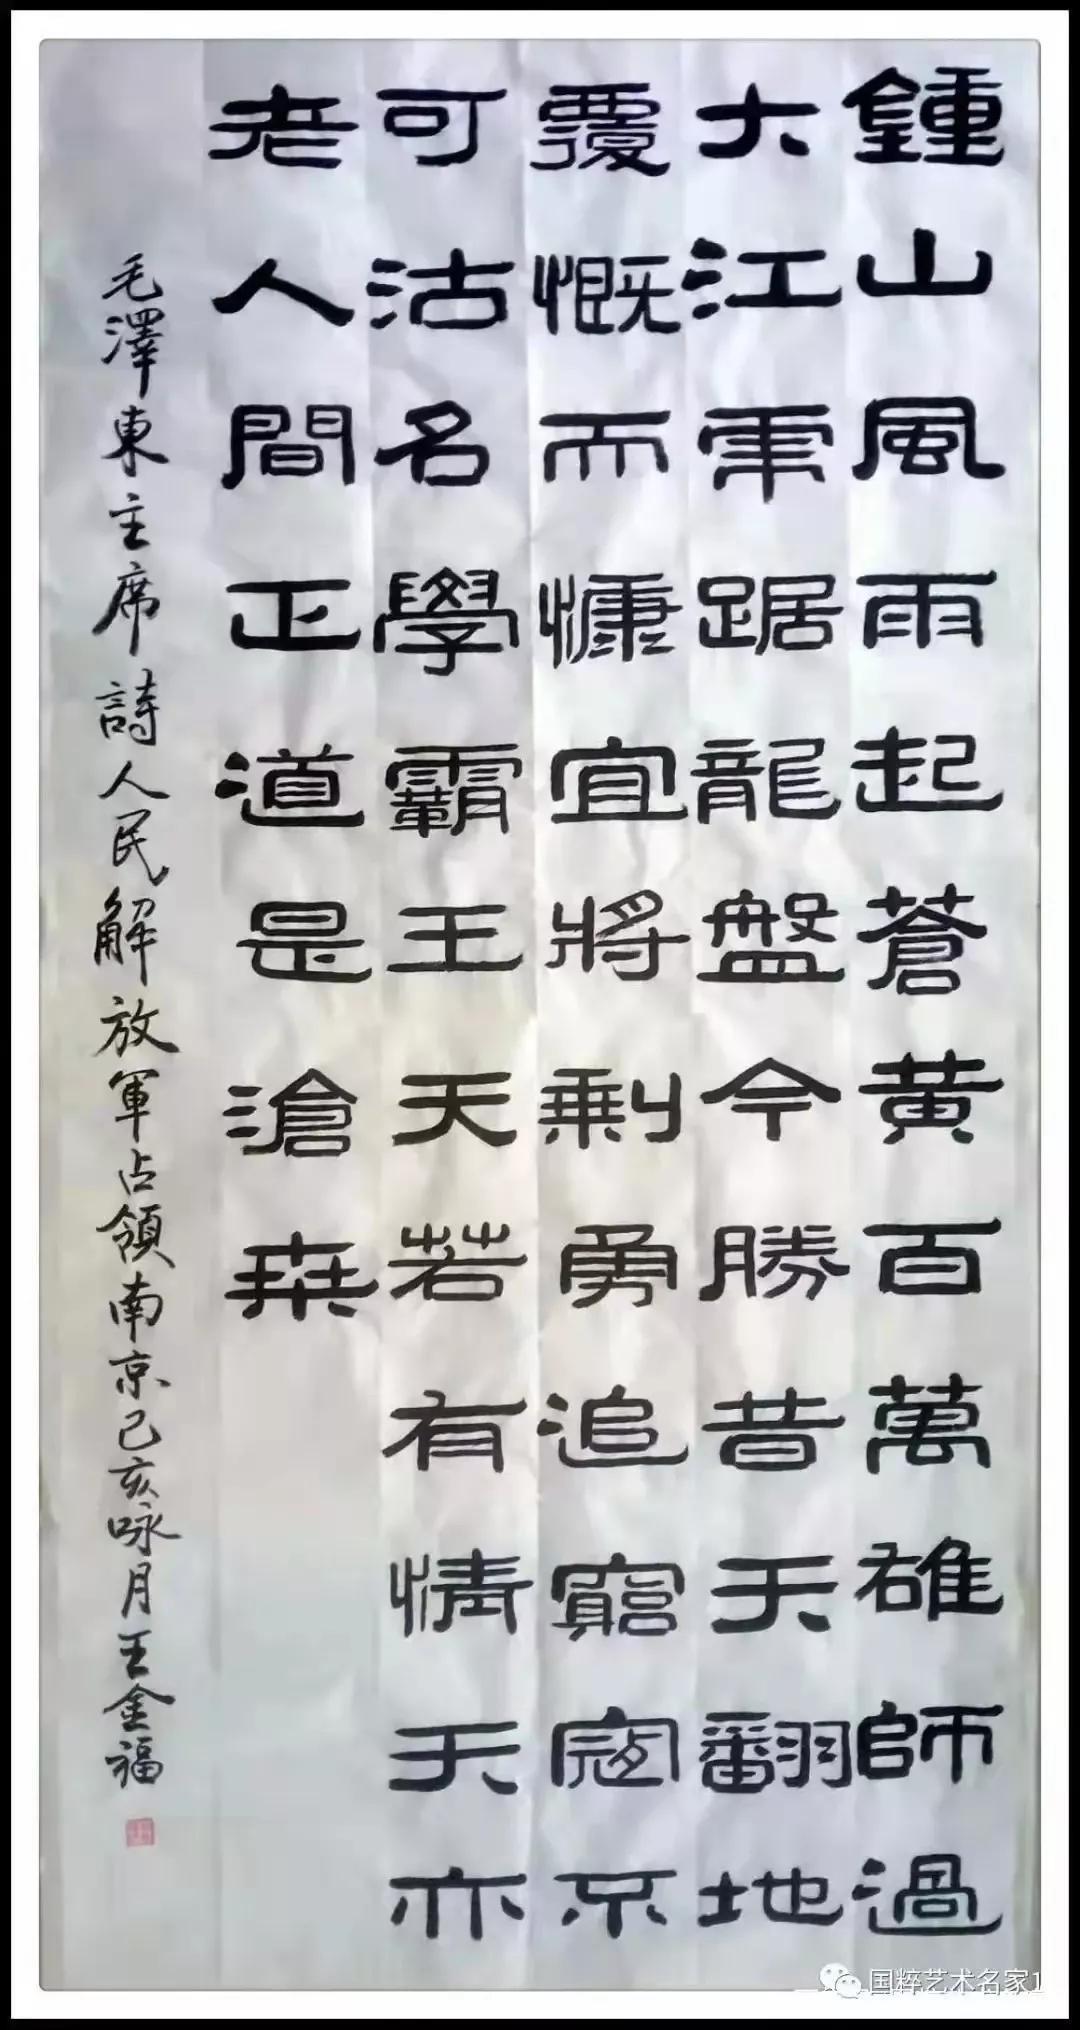 鍾山風雨起蒼黃百萬雄師過
大江虎踞龍盤今勝昔天翻地
覆慨而慷宜將剩勇追窮寇不
可沽名學霸王天若有情天亦
老人間正道是滄桒
毛澤東主席詩人民解放軍占領南京己亥咏月王金福
国粹艺术名家1